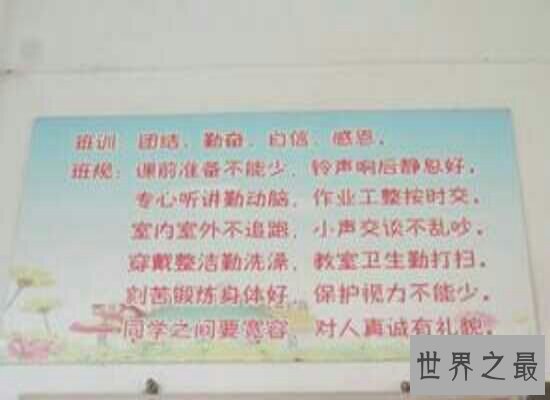 班训：团结、勤奋、自信、感恩。
班规：课前准备不能少，铃声响后静息好。
专心听讲勤动脑，作业工整按时交。
室内室外不追跑，小声交谈不乱吵。
穿戴整洁勤洗澡，教室卫生勤打扫。
刻苦锻炼身体好，保护视力不能少。
同学之间要宽容，对人真诚有礼貌。
世界之最